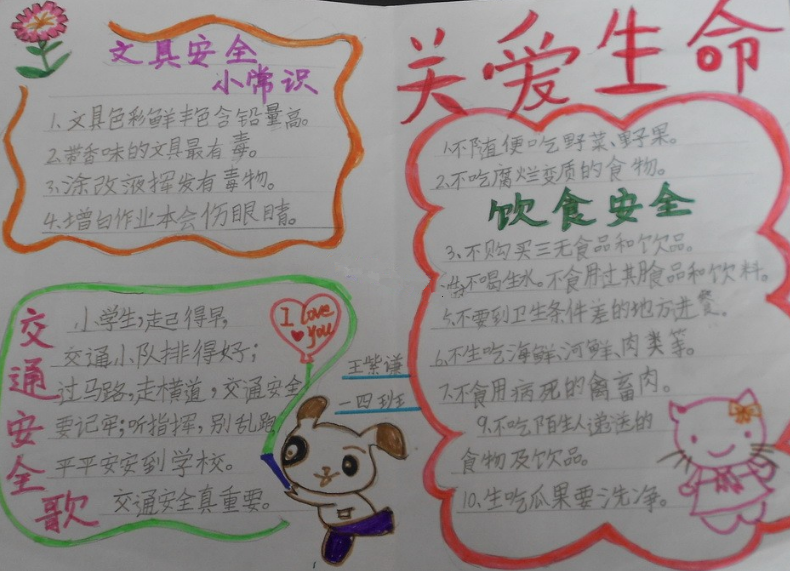 关爱生命
文具安全
小常识
1.文具色彩鲜丰色含铅量高。
2.带香味的文具最有毒。
3.涂改液挥发有毒物。
4.增白作业本会伤眼睛。
交通安全歌
小学生,走己得早,
交通小队排得好;
过马路,走横道,交通安全
要记牢;听指挥,别乱跑
平平安安到学校。
交通安全真重要。
I love
you
王紫谦
一四班
1.不随便吃野菜、野果。
2.不吃腐烂变质的食物。
饮食安全
3.不购买三无食品和饮品。
不喝生水。不食用过期食品和饮料。
5.不要到卫生条件差的地方进餐。
6.不生吃海鲜、河鲜、肉类等。
7.不食用病死的禽畜肉。
9.不吃陌生人递送的
食物及饮品。
10.生吃瓜果要洗净。